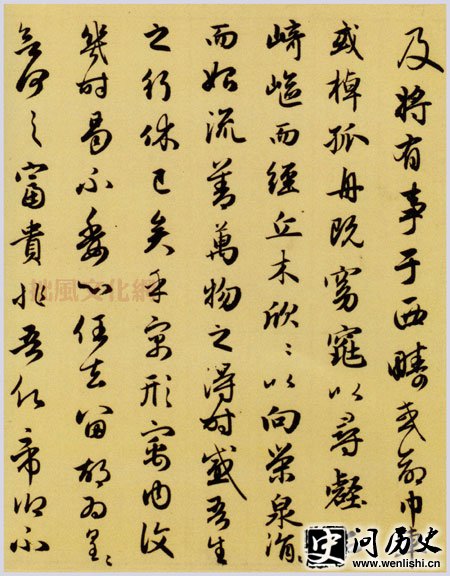 及將有事于西疇或命巾車
或棹孤舟既窈窕以尋壑
崎嶇而經丘木欣〻以向榮泉涓
而始流善萬物之得時感吾生
之行休已矣乎寓形寓内復
幾時曷不委心任去留胡為遑〻
何之富貴非吾願帝鄉不
拙風文化網
问历史
www.wenlishi.cn